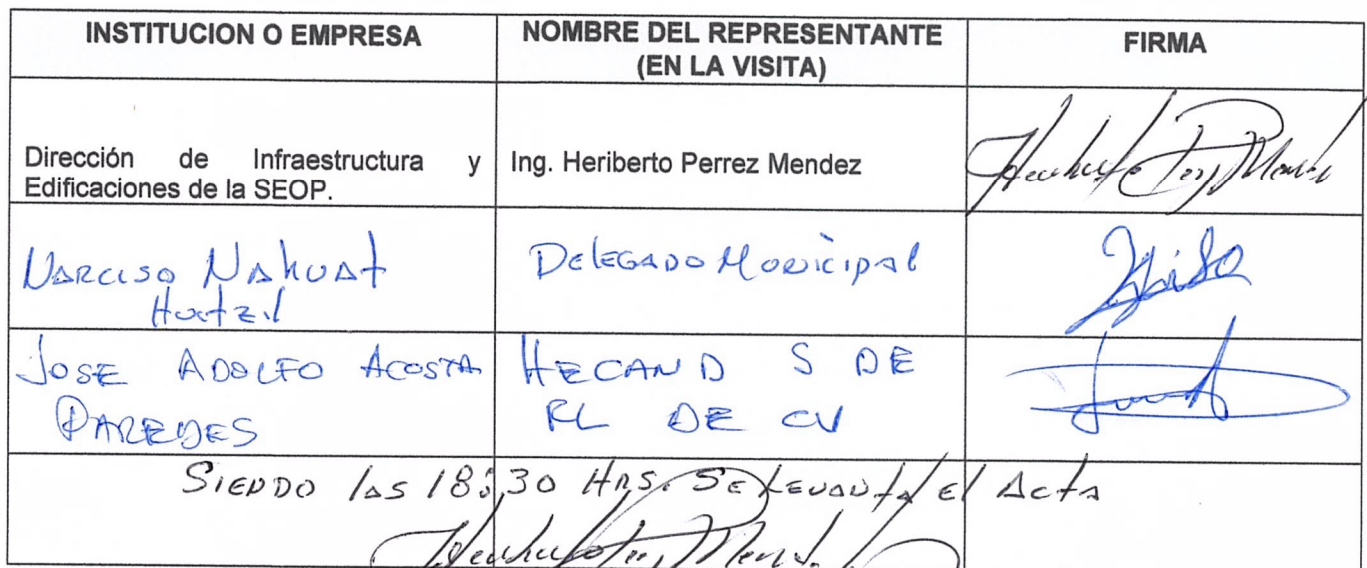 INSTITUCION O EMPRESA
NOMBRE DEL REPRESENTANTE
(EN LA VISITA)
FIRMA
Dirección de Infraestructura y
Edificaciones de la SEOP.
Ing. Heriberto Perrez Mendez
Narciso Nahuat
Delegado Municipal
JOSE ADOLFO ACOSTA
PAREDES
HECAND S DE
RL DE CV
SIENDO las 18:30 HRS. Se levanta el Acta